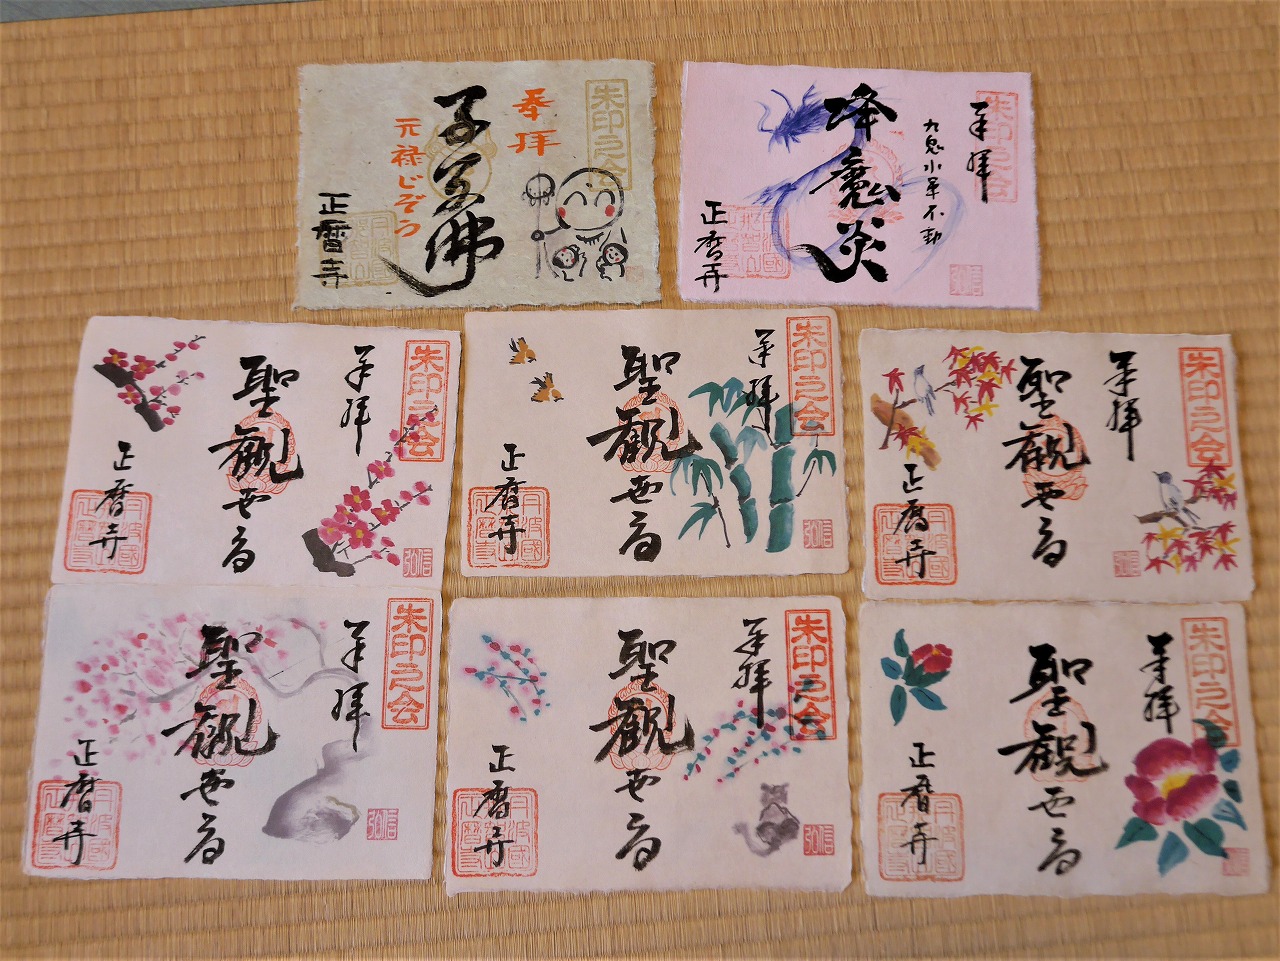 朱印之会
奉拝
子安佛
元禄じぞう
正暦寺
朱印之会
奉拝
九鬼水軍不動
降魔炎
正暦寺
朱印之会
奉拝
聖観世音
正暦寺
丹波國
信
朱印之会
奉拝
聖観世音
正暦寺
丹波國
信
朱印之会
奉拝
聖観世音
正暦寺
丹波國
朱印之会
奉拝
聖観世音
正暦寺
信
朱印之会
奉拝
聖観世音
正暦寺
丹波國
信
朱印之会
奉拝
聖観世音
正暦寺